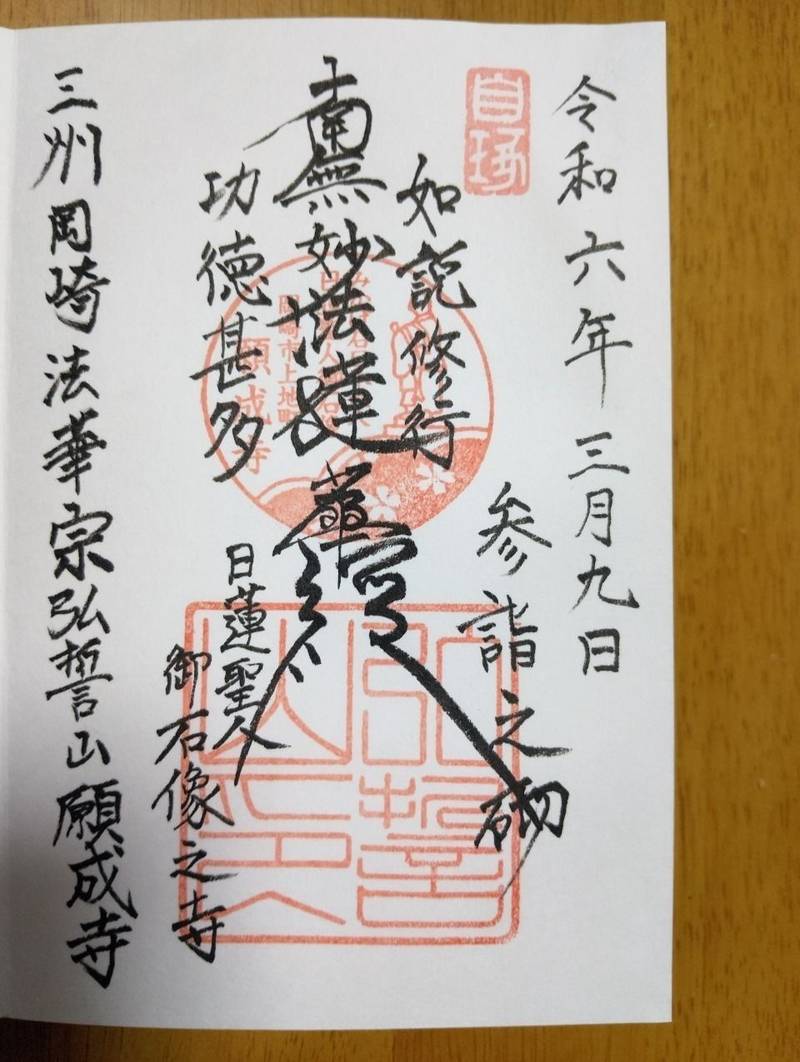 令和六年三月九日
参詣之砌
如説修行
南無妙法蓮華経
功徳甚多
日蓮聖人
御石像之寺
三州岡崎法華宗弘誓山願成寺
岡崎市上地町
願成寺